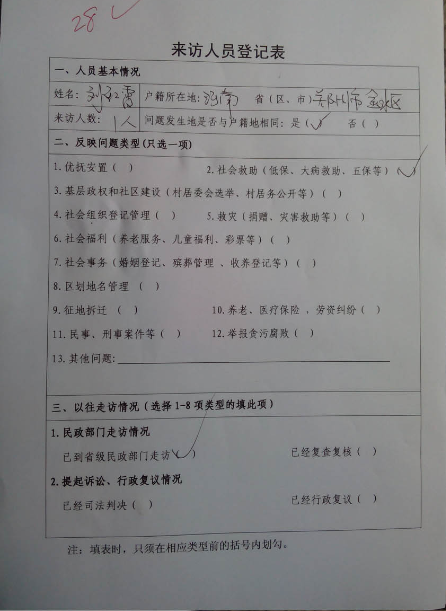 28 ✓
来访人员登记表
一、人员基本情况
姓名: 刘 户籍所在地: 河南 省(区、市) 郑州市 金水区
来访人数: 1人 问题发生地是否与户籍地相同: 是(✓) 否( )
二、反映问题类型(只选一项)
1.优抚安置( ) 2.社会救助(低保、大病救助、五保等)(✓)
3.基层政权和社区建设(村居委会选举、村居务公开等)( )
4.社会组织登记管理( ) 5.救灾(捐赠、灾害救助等)( )
6.社会福利(养老服务、儿童福利、彩票等)( )
7.社会事务(婚姻登记、殡葬管理、收养登记等)( )
8.区划地名管理( )
9.征地拆迁( ) 10.养老、医疗保险、劳资纠纷( )
11.民事、刑事案件等( ) 12.举报贪污腐败( )
13.其他问题:
三、以往走访情况(选择1-8项类型的填此项)
1.民政部门走访情况
已到省级民政部门走访(✓) 已经复查复核( )
2.提起诉讼、行政复议情况
已经司法判决( ) 已经行政复议( )
注: 填表时,只须在相应类型前的括号内划勾。